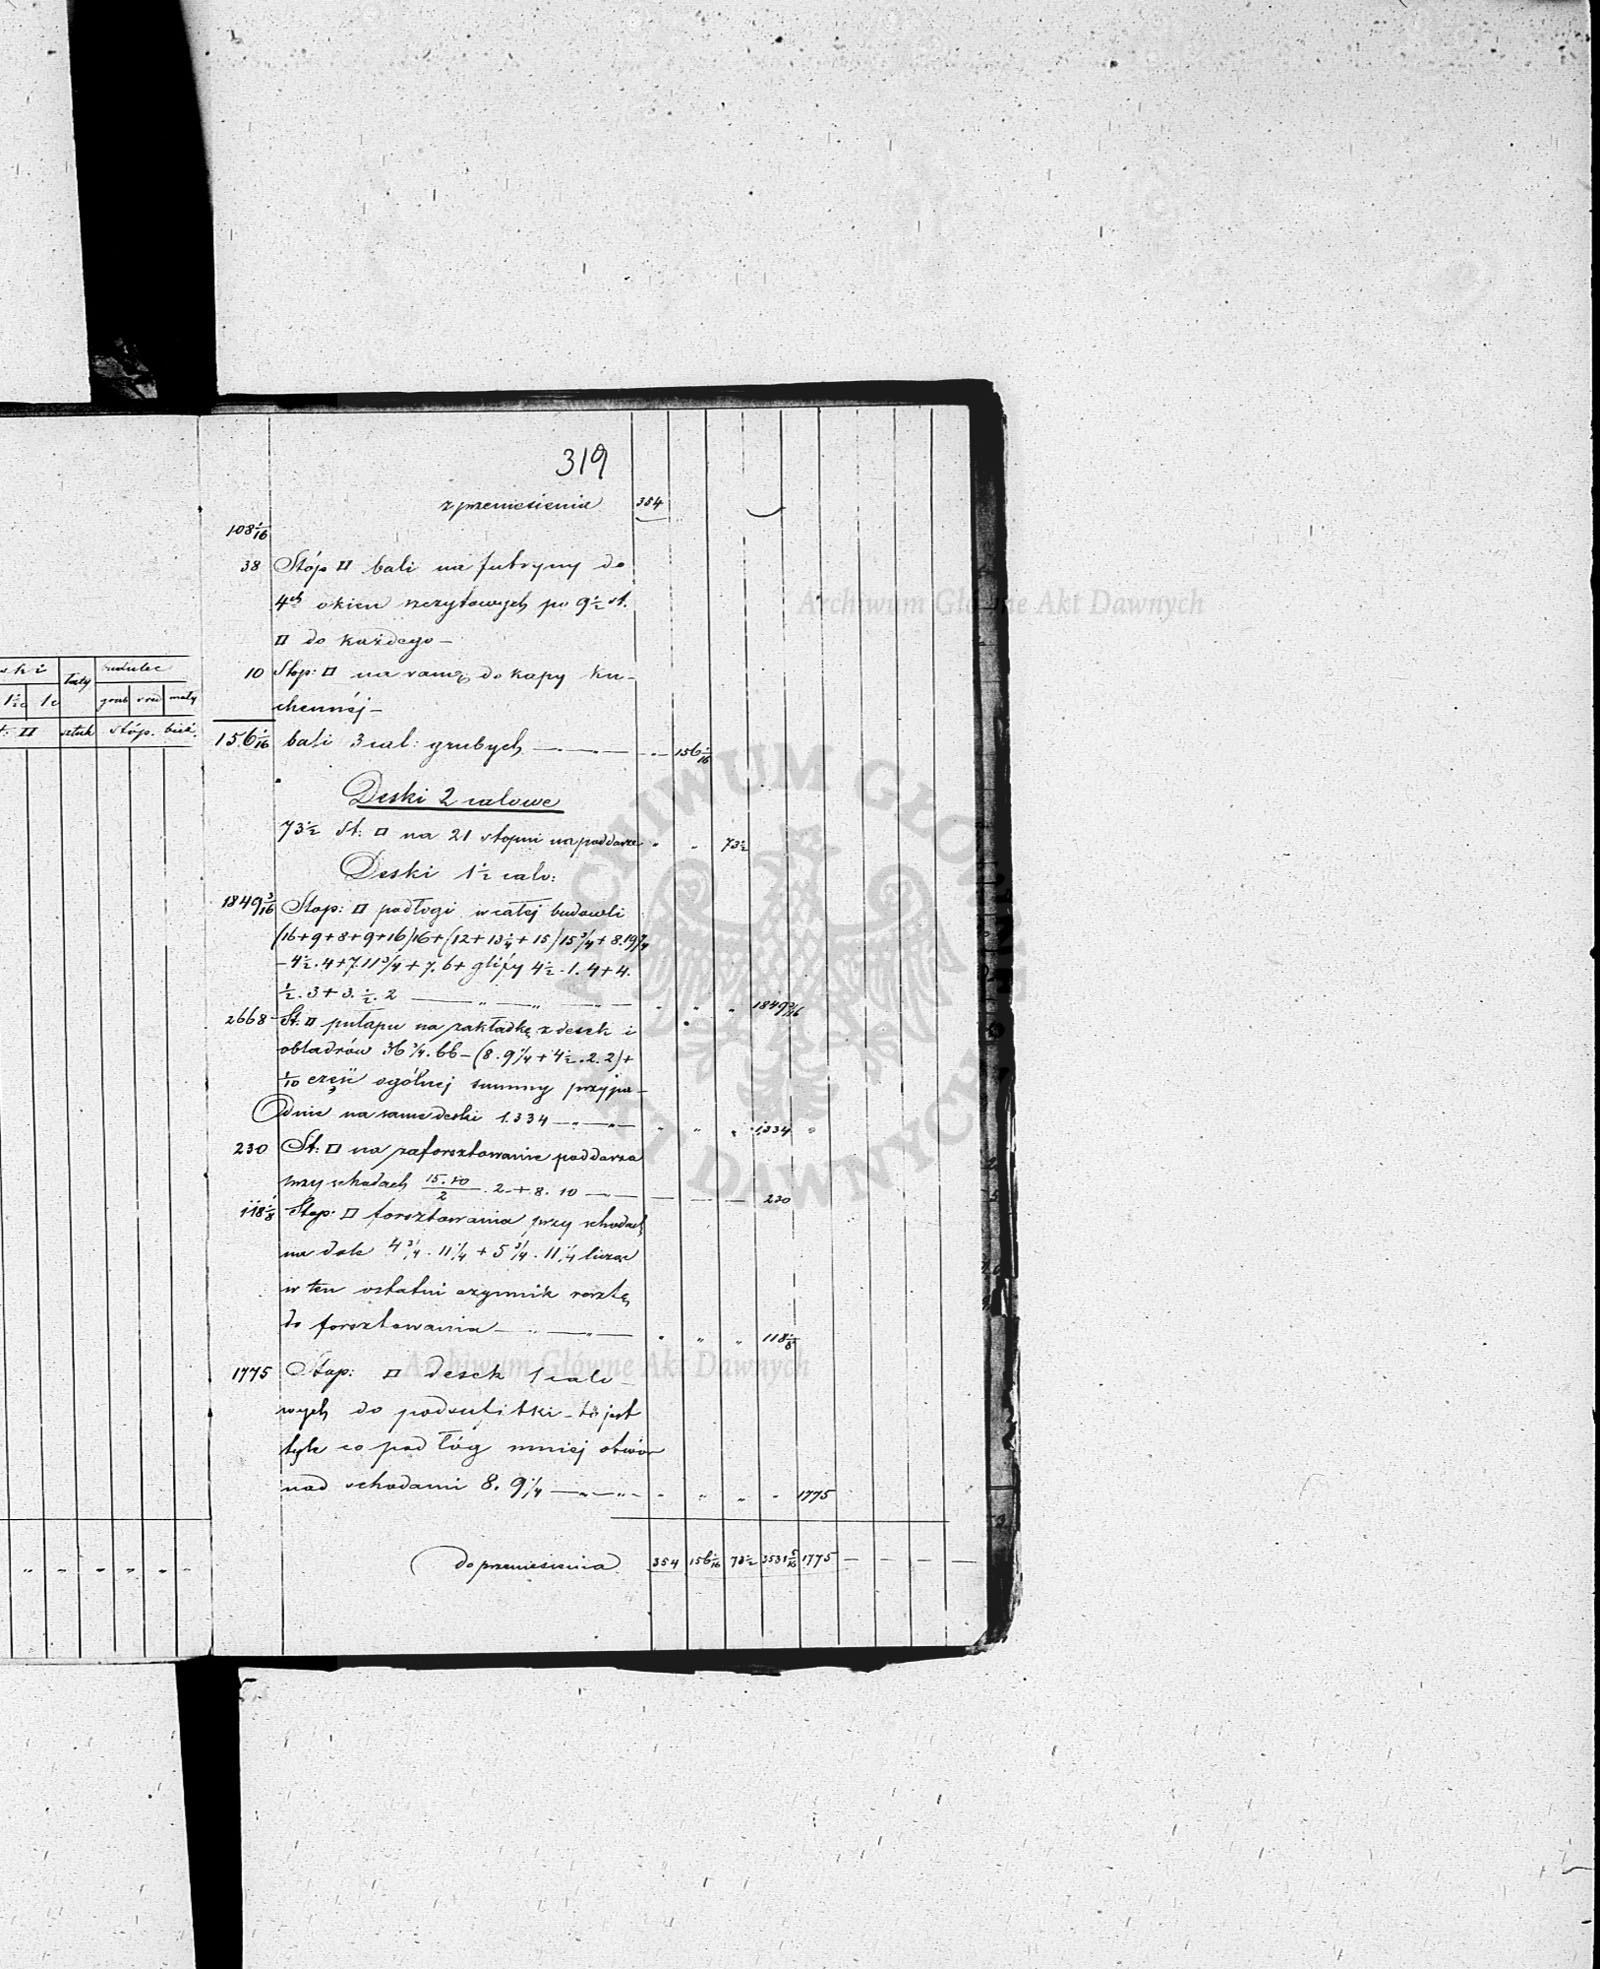 319
z przeniesienia 354
108 1/16
38 Stóp □ bali na futryny do
4ch okien szczytowych po 9 1/2 st.
□ do każdego –
10 Stop: □ na ramę do kapy ku-
chennéj –
156 1/16 bali 3 cal: grubych — „ — 156 1/16
Deski 2 calowe
73 1/2 St: □ na 21 stopni na poddasze „ „ 73 1/2
Deski 1 1/2 calo:
1849 3/16 Stop: □ podłogi w całej budowli
(16+9+8+9+16)16+(12+13 1/4+15)15 3/4+8.19 3/4
– 4 1/2.4+7.11 3/4+7.6+ glify 4 1/2.1.4+4.
1/2.3+3.1/2.2 — „ — „ — „ „ „ 1849 3/16
2668 St: □ pułapu na zakładkę z desek i
obladrów 36 3/4.66–(8.9 1/4+4 1/2.2.2)+
1/10 część ogólnej summy przypa-
dnie na same deski 1.334 — „ — „ — „ „ „ 1334 „
230 St: □ na zaforsztowanie poddasza
przy schodach 15.10/2 .2+8.10 — „ — 230
118 1/8 Stop: □ forsztowania przy schodach
na dole 4 3/4.11 1/4+5 3/4.11 1/4 licząc
w ten ostatni czynnik resztę
do forsztowania — „ — „ — „ „ „ 118 1/8
1775 Stop: □ desek 1 calo-
wych do podsubitki – to jest
tyle co podłóg mniej otwór
nad schodami 8.9 1/4 — „ — „ — „ „ „ „ 1775
do przeniesienia 354 156 1/16 73 1/2 3531 5/16 1775 — — — —
ski łaty rudulec
1 1/2 c 1 c grub śred mały
t. □ sztuk Stóp. bież.
„ „ „ „ „ „
Archiwum Główne Akt Dawnych
ARCHIWUM GŁÓWNE AKT DAWNYCH
Archiwum Główne Akt Dawnych